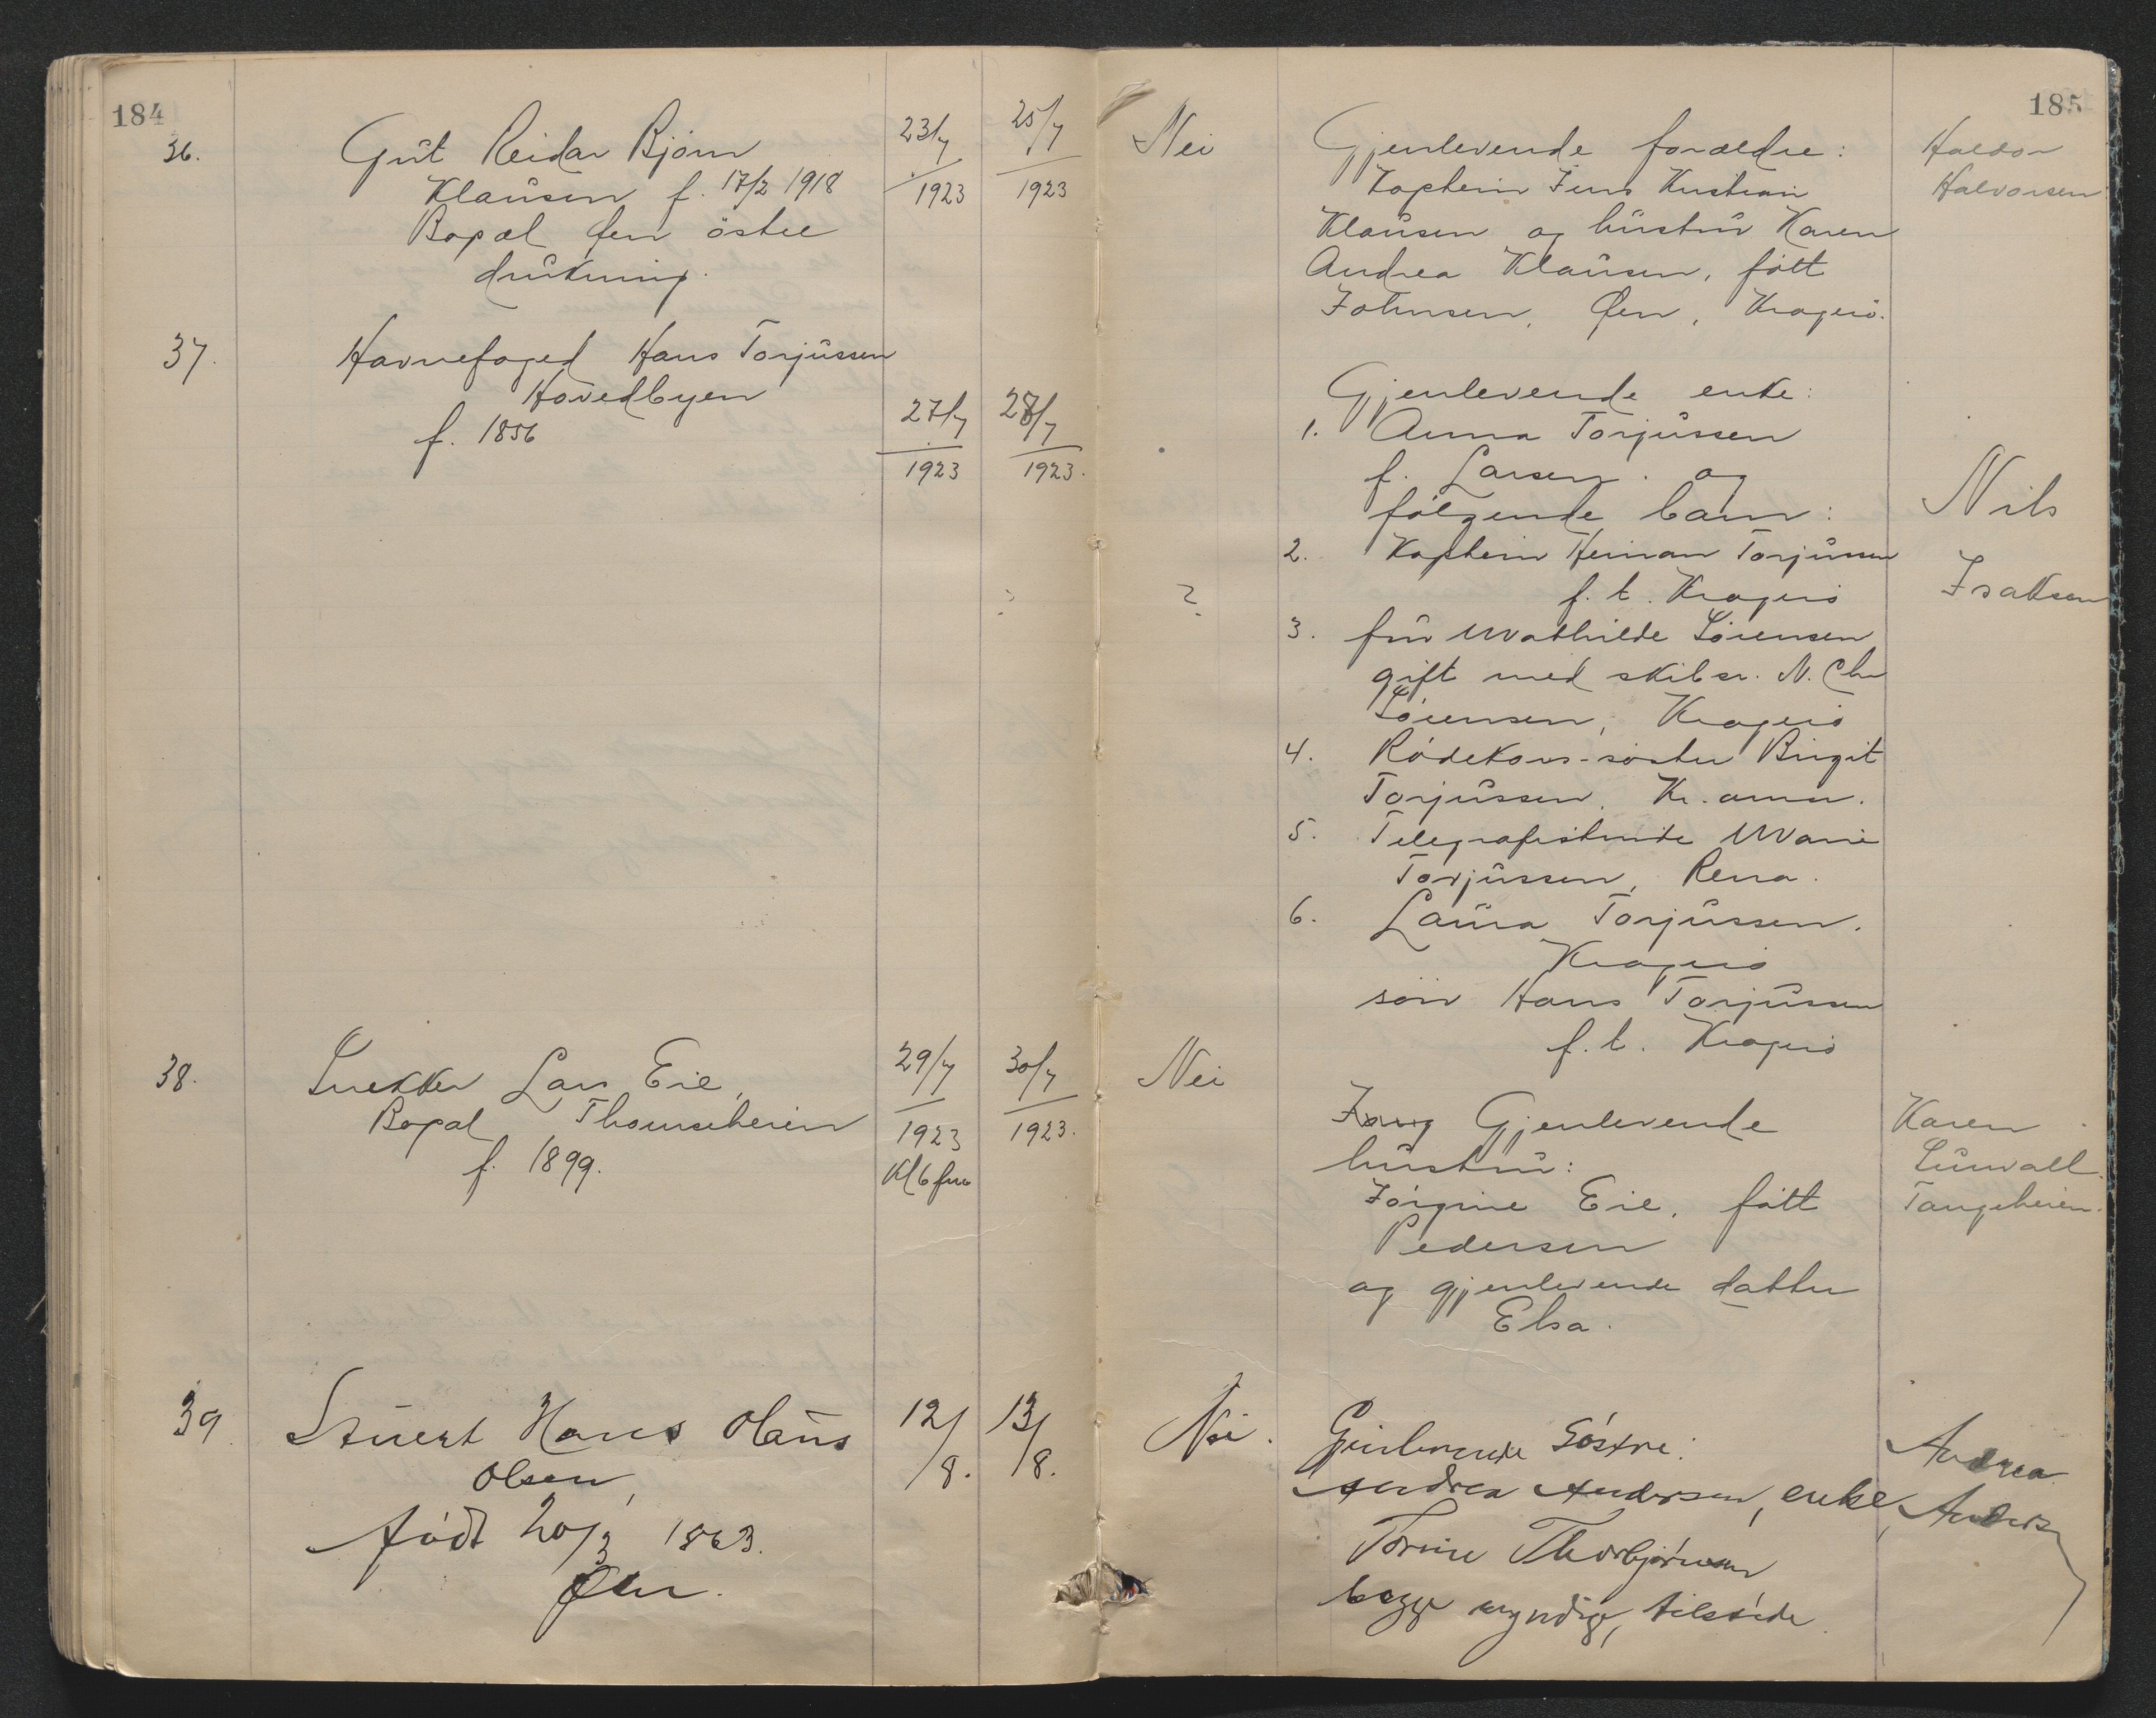 184
36.
Gut Reidar Bjørn
Klausen f. 17/2 1918
Bopæl Øen østre
drukning.
23/7
1923
25/7
1923
37.
Havnefoged Hans Torjussen
Hovedbyen
f. 1856
27/7
1923
28/7
1923.
38.
Snekker Lars Eie,
Bopæl Thomseheien
f. 1899.
29/7
1923
Kl 6 fm
30/7
1923.
39
Stuert Hans Olaus
Olsen,
født 20/3 1863.
Øen.
12/8.
13/8.
185
Nei
Gjenlevende forældre:
Kaptein Jens Kristian
Klausen og hustru Karen
Andrea Klausen, født
Johnsen, Øen, Kragerø.
Haldor
Halvorsen
Gjenlevende enke:
1. Anna Torjussen
f. Larsen. og
følgende barn:
2. Kaptein Herman Torjussen
f. t. Kragerø
?
3. fru Mathilde Sørensen
gift med skibsr. N. Chr
Sørensen, Kragerø
4. Rødekors-søster Birgit
Torjussen, Kr. ania.
5. Telegrafistinde Marie
Torjussen, Rena.
6. Laura Torjussen.
Kragerø
søn Hans Torjussen
f. t. Kragerø
Nils
Isaksen
Nei
Gjenlevende
hustru:
Jørgine Eie, født
Pedersen
og gjenlevende datter
Elsa.
Karen
Tangeheien.
Nei.
Gjenlevende Søstre:
Andrea Andersen, enke,
Torine Thorbjørnsen
begge myndige, tilstede.
Andrea
Anders